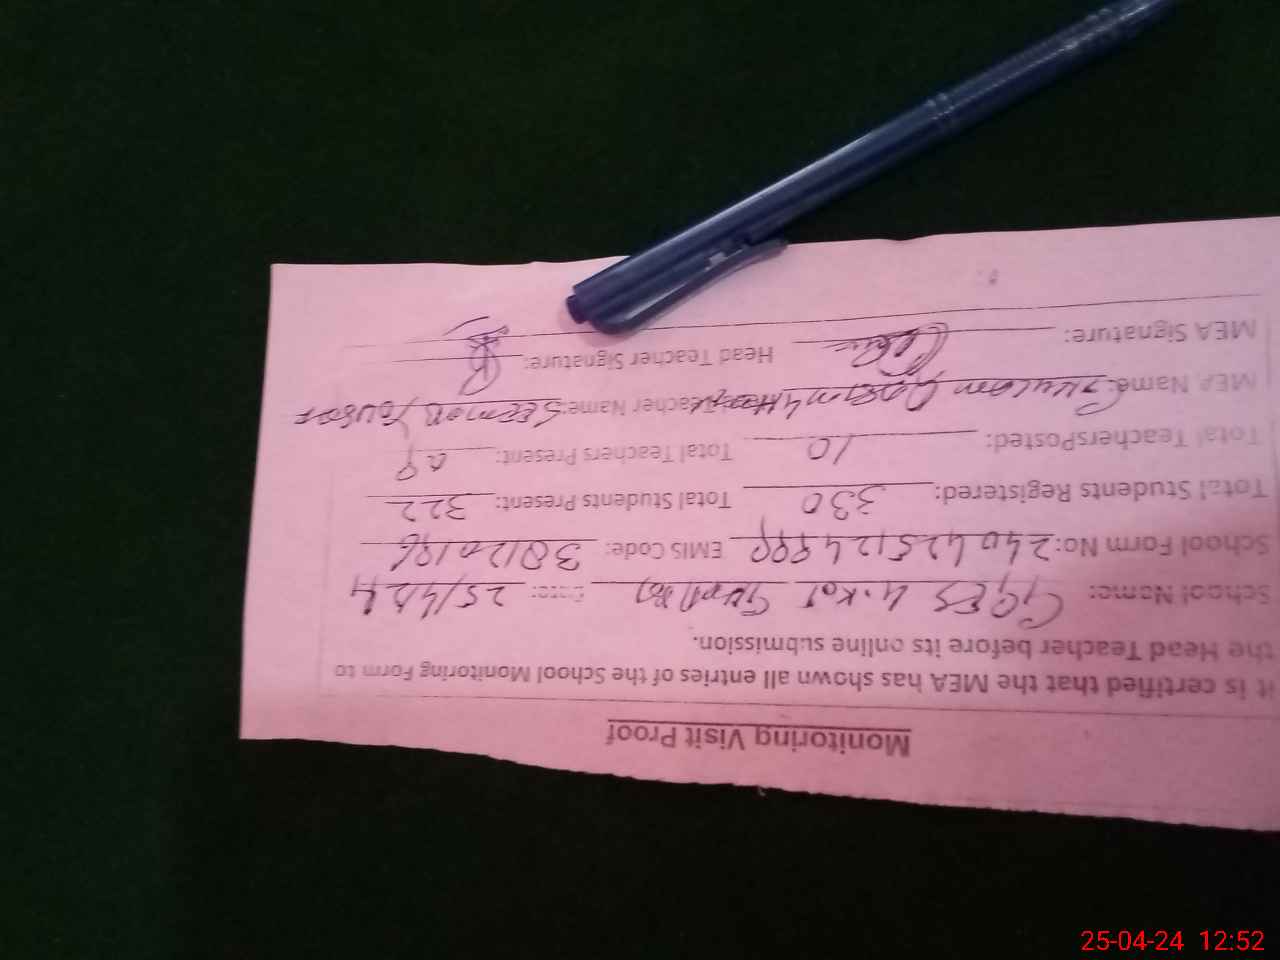 Monitoring Visit Proof
It is certified that the MEA has shown all entries of the School Monitoring Form to
the Head Teacher before its online submission.
School Name: GGES 4.Kot Date: 25/4/24
School Form No: EMIS Code: 38120196
Total Students Registered: 330 Total Students Present: 322
Total TeachersPosted: 10 Total Teachers Present: 09
MEA Name: Ghulam Teacher Name: Yousaf
MEA Signature: Head Teacher Signature:
25-04-24 12:52